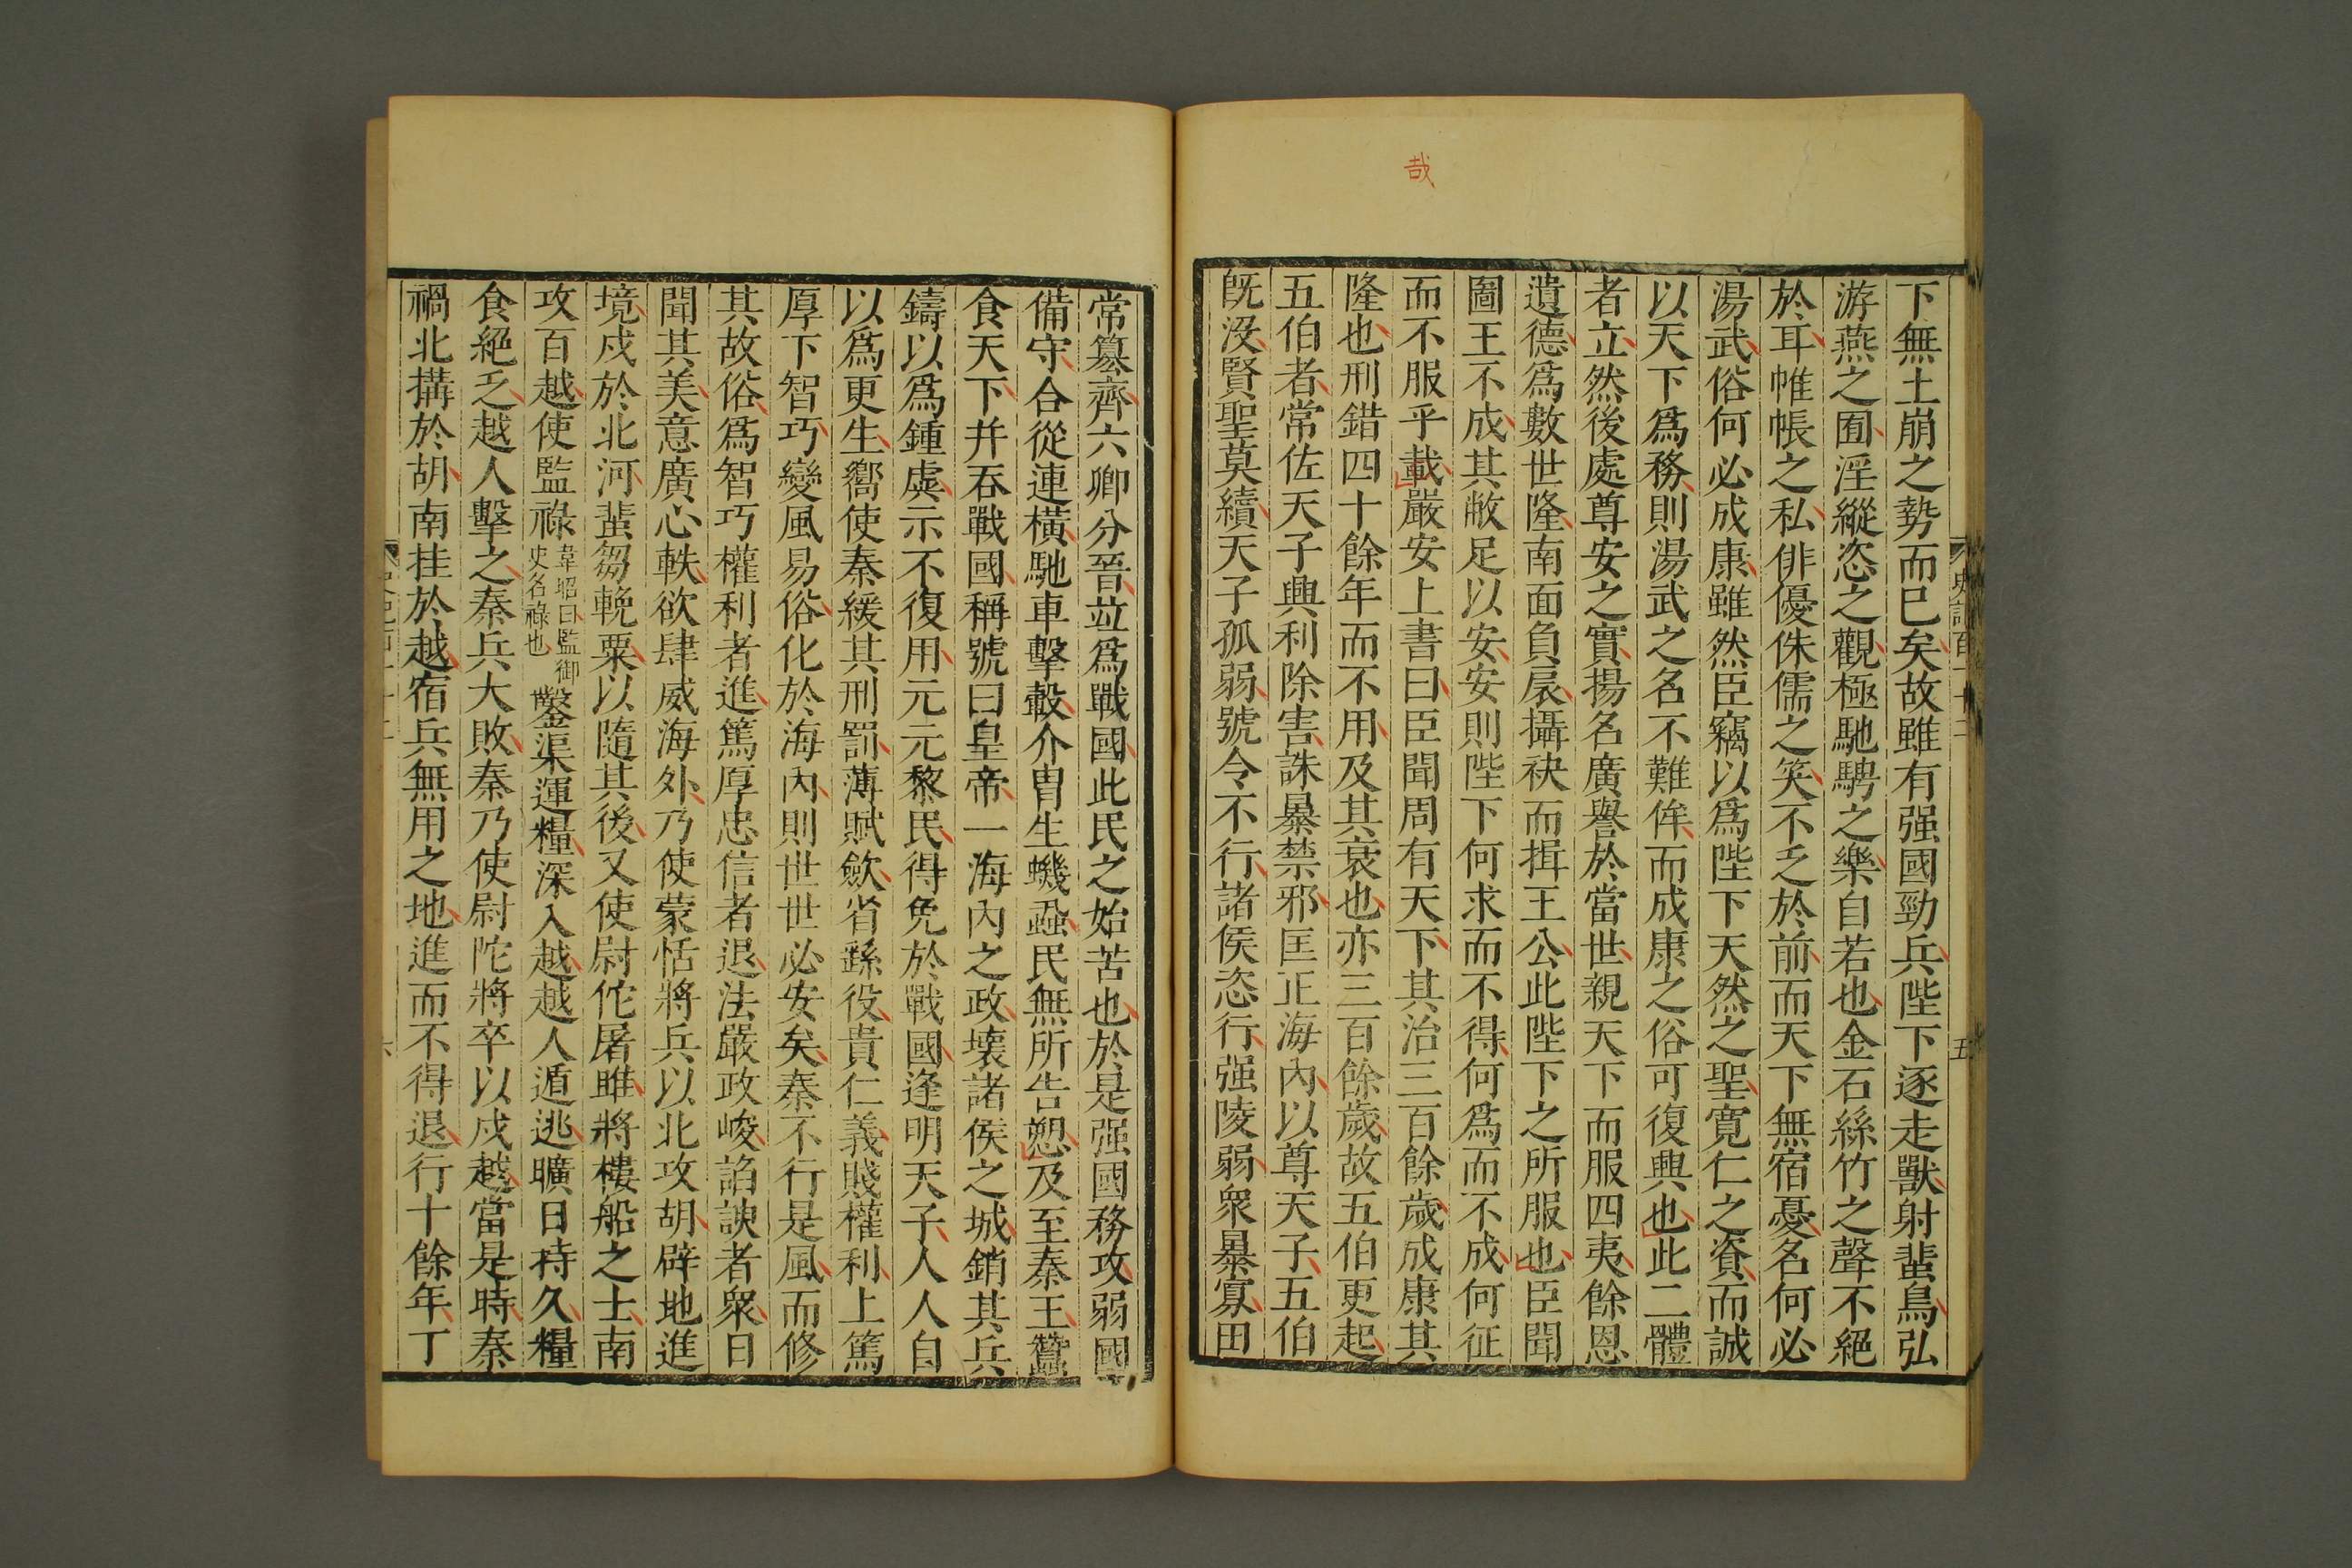 哉
史記百一十二
五
下無土崩之勢而已矣故雖有强國勁兵陛下逐走獸射蜚鳥弘
游燕之囿淫縱恣之觀極馳騁之樂自若也金石絲竹之聲不絕
於耳帷帳之私俳優侏儒之笑不乏於前而天下無宿憂名何必
湯武俗何必成康雖然臣竊以爲陛下天然之聖寬仁之資而誠
以天下爲務則湯武之名不難侔而成康之俗可復興也此二體
者立然後處尊安之實揚名廣譽於當世親天下而服四夷餘恩
遺德爲數世隆南面負扆攝袂而揖王公此陛下之所服也臣聞
圖王不成其敝足以安安則陛下何求而不得何爲而不成何征
而不服乎載嚴安上書曰臣聞周有天下其治三百餘歲成康其
隆也刑錯四十餘年而不用及其衰也亦三百餘歲故五伯更起
五伯者常佐天子興利除害誅暴禁邪匡正海內以尊天子五伯
旣没賢聖莫續天子孤弱號令不行諸侯恣行强陵弱衆暴寡田
常簒齊六卿分晉竝爲戰國此民之始苦也於是强國務攻弱國
備守合從連橫馳車擊轂介冑生蟣蝨民無所告愬及至秦王蠶
食天下幷吞戰國稱號曰皇帝一海內之政壞諸侯之城銷其兵
鑄以爲鍾虡示不復用元元黎民得免於戰國逢明天子人人自
以爲更生嚮使秦緩其刑罰薄賦歛省繇役貴仁義賤權利上篤
厚下智巧變風易俗化於海內則世世必安矣秦不行是風而修
其故俗爲智巧權利者進篤厚忠信者退法嚴政峻諂諛者衆日
聞其美意廣心軼欲肆威海外乃使蒙恬將兵以北攻胡辟地進
境戍於北河蜚芻輓粟以隨其後又使尉佗屠睢將樓船之士南
攻百越使監祿韋昭曰監御史名祿也鑿渠運糧深入越越人遁逃曠日持久糧
食絕乏越人擊之秦兵大敗秦乃使尉陀將卒以戍越當是時秦
禍北搆於胡南挂於越宿兵無用之地進而不得退行十餘年丁
六